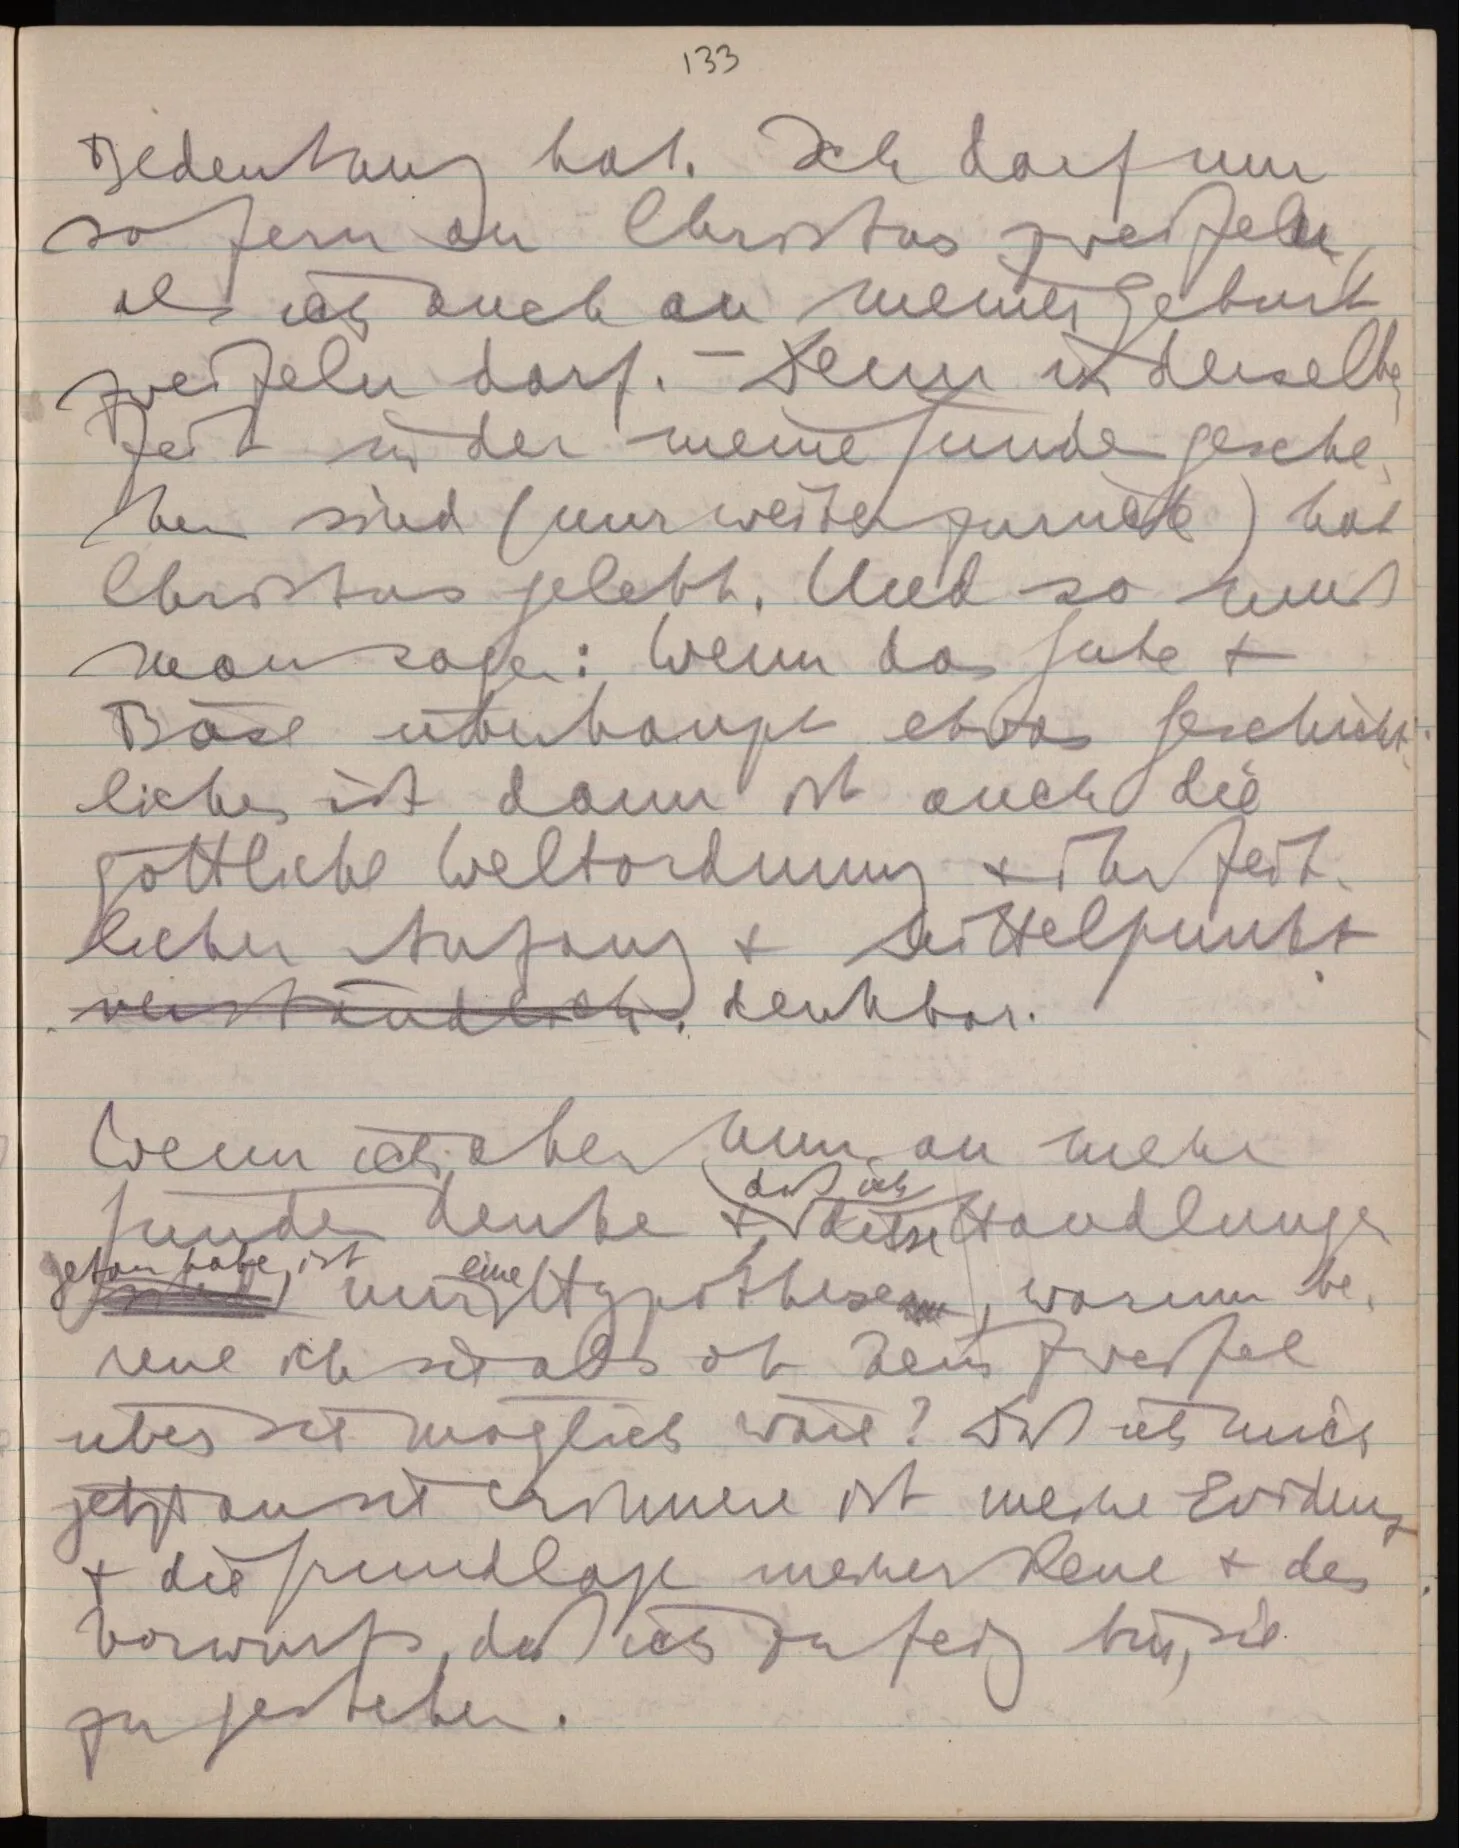 133
Bedeutung hat. Ich darf nur
so fern an Christus zweifeln,
als ich auch an meiner Geburt
zweifeln darf. – Denn in derselben
Zeit in der meine Sünden gesche-
hen sind (nur weiter zurück) hat
Christus gelebt. Und so muß
man sagen: Wenn das Gute +
Böse überhaupt etwas Geschicht-
liches ist dann ist auch die
göttliche Weltordnung + ihr zeit-
licher Anfang + Mittelpunkt
verständlich. denkbar.
Wenn ich aber nun an meine
daß ich
Sünden denke + diese Handlungen
getan habe, ist eine
nur Hypothese, warum be-
reue ich sie als ob kein Zweifel
über sie möglich wäre? Daß ich mich
jetzt an sie erinnere ist meine Evidenz
+ die Grundlage meiner Reue + des
Vorwurfs, daß ich zu feig bin, sie
zu gestehen.